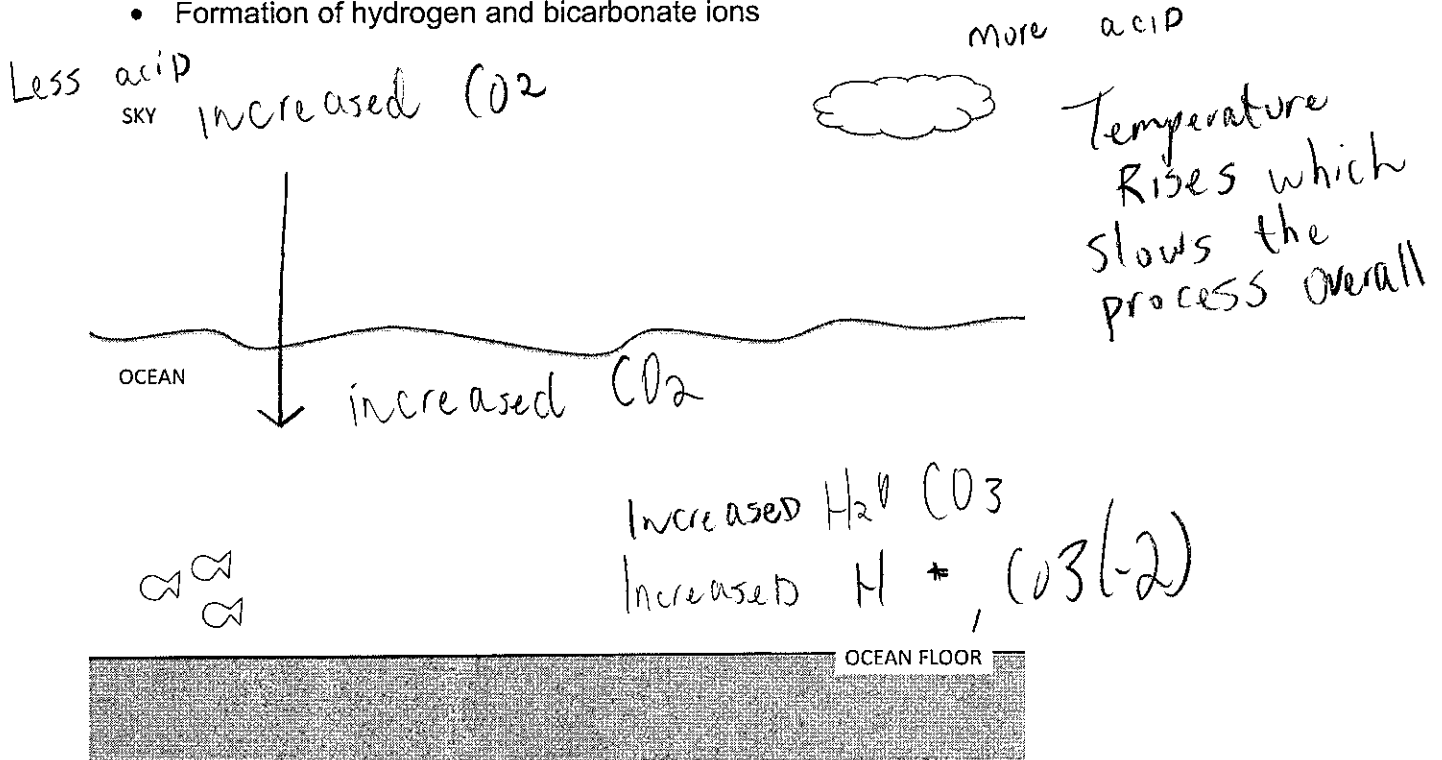 • Formation of hydrogen and bicarbonate ions
more acid
Less acid
SKY increased CO2
Temperature
Rises which
slows the
process overall
OCEAN
increased CO2
Increased H2O CO3
Increased H+, CO3(-2)
OCEAN FLOOR